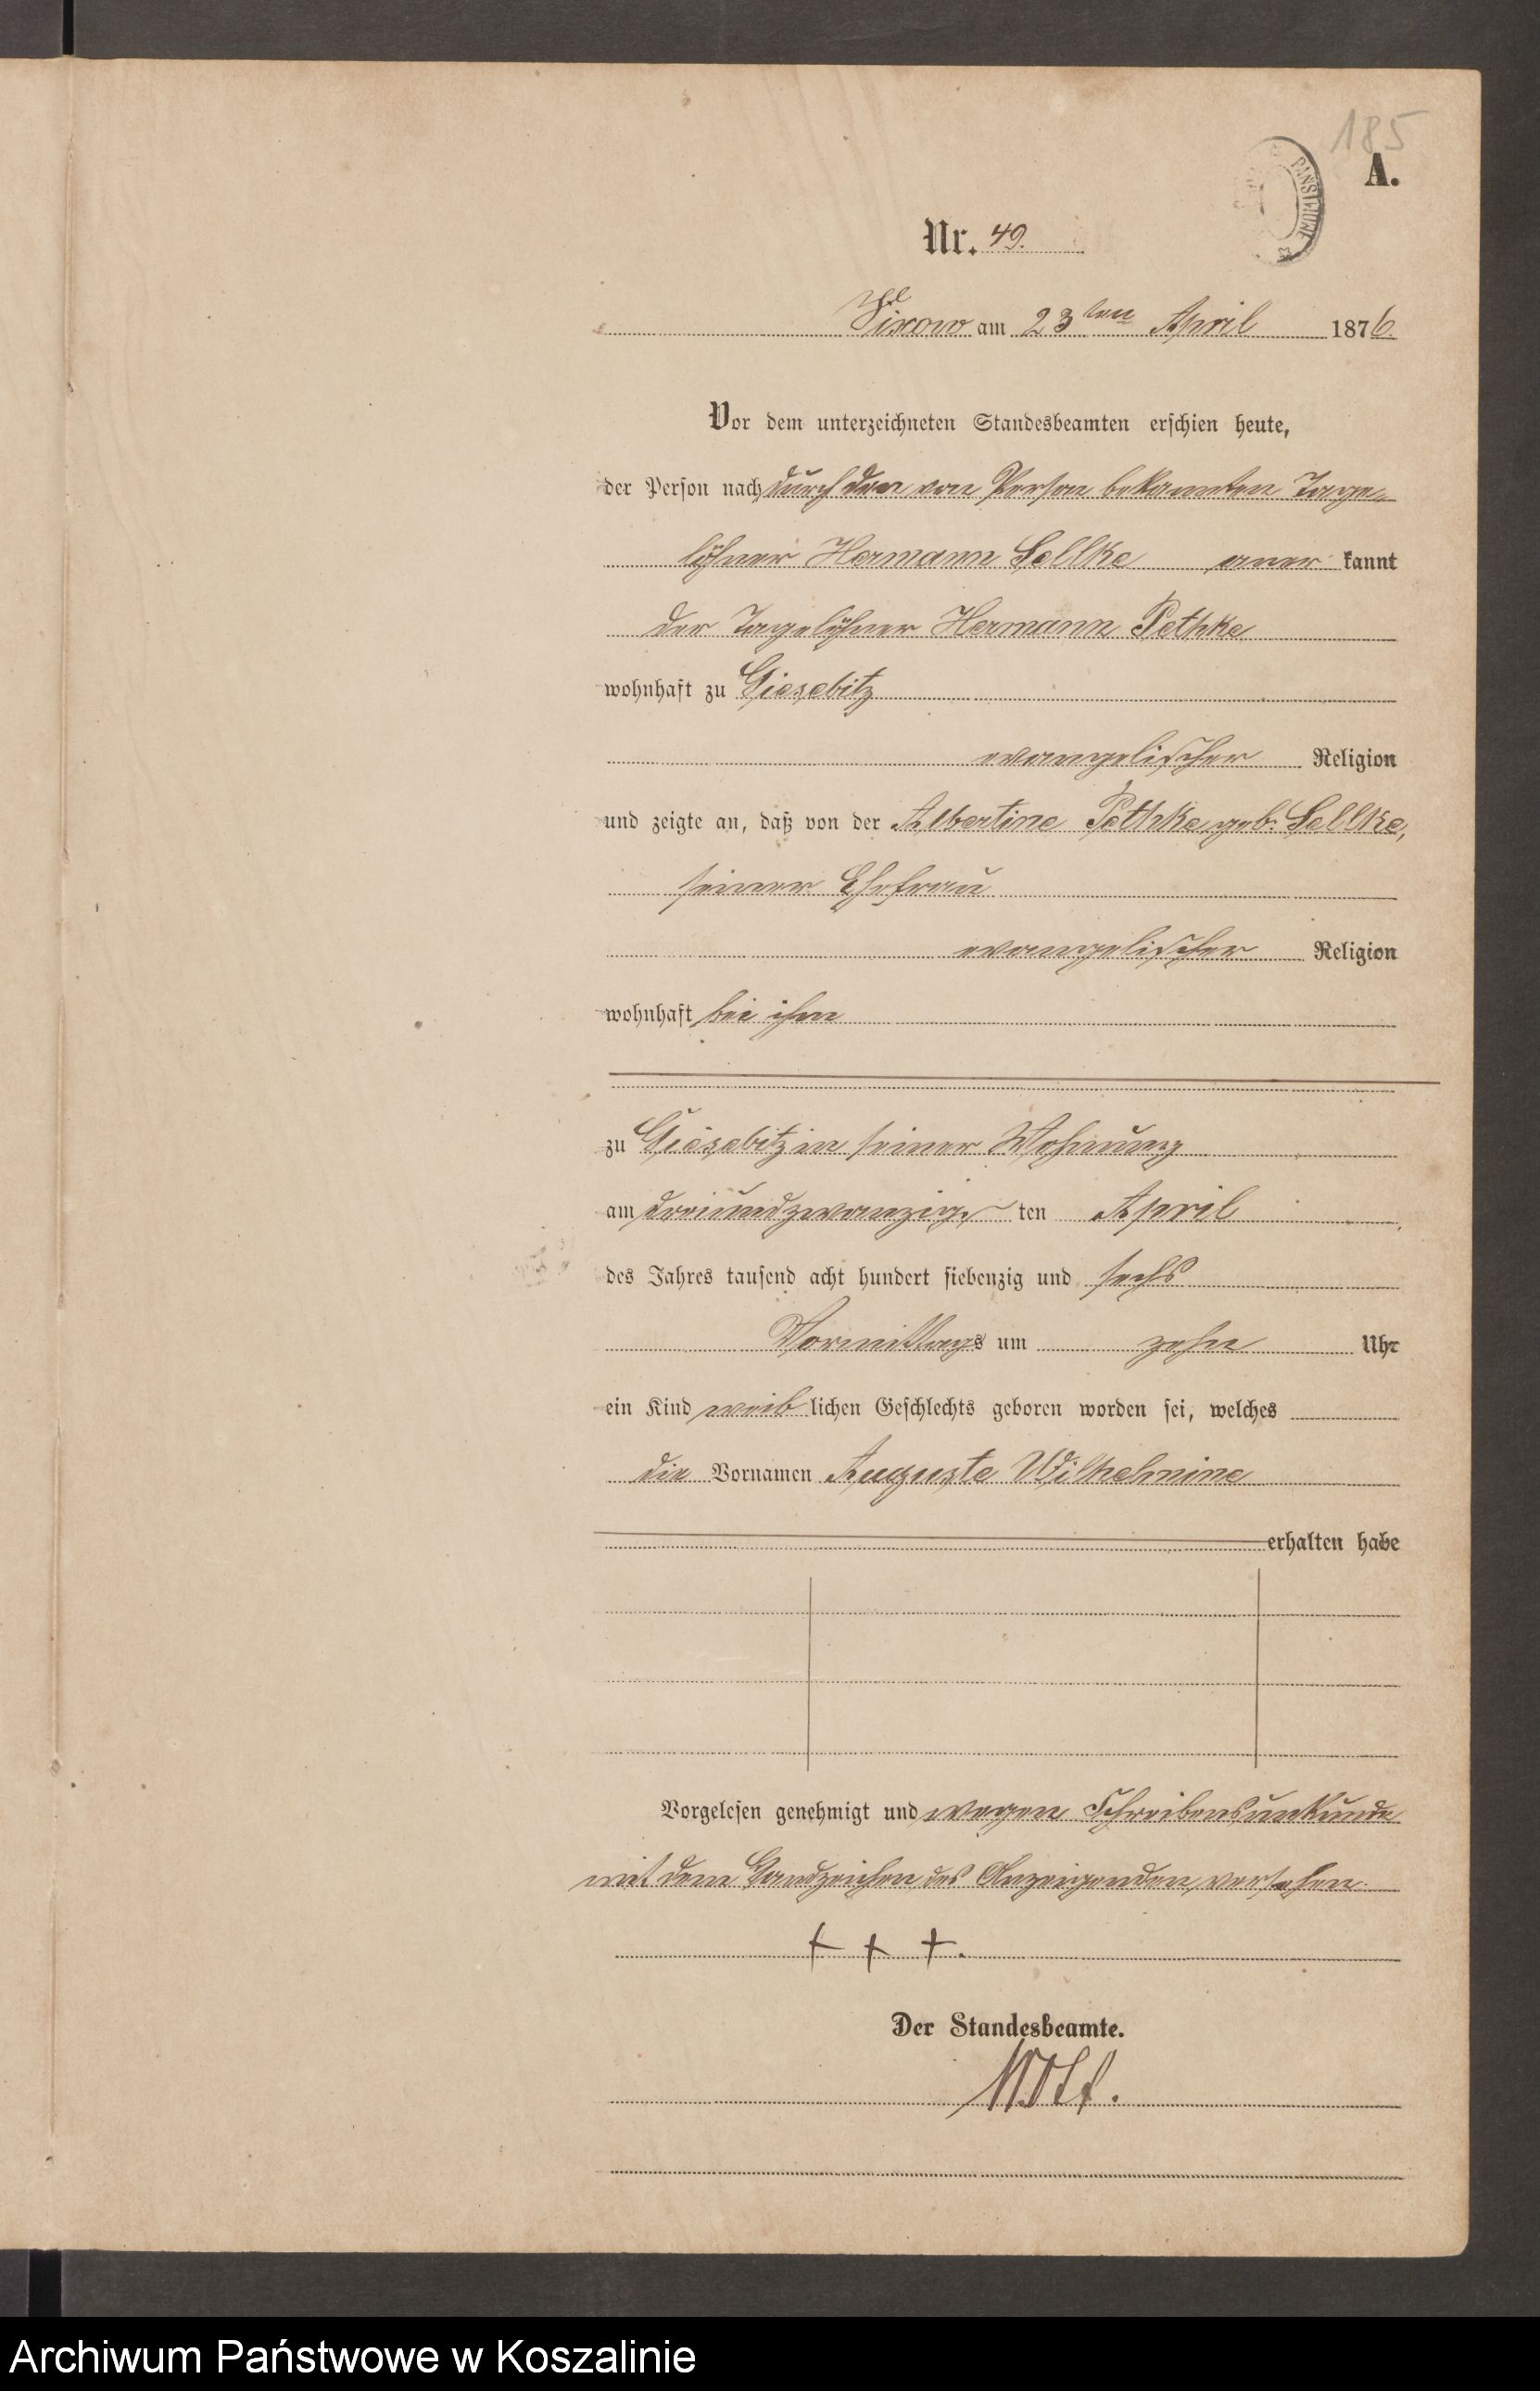 185
A.
PAŃSTWOWE
Nr. 49.
Vixow am 23ten April 1876.
Vor dem unterzeichneten Standesbeamten erschien heute,
der Person nach durch den von Person bekannten Tage-
löhner Hermann Sellke aner kannt
der Tagelöhner Hermann Pethke
wohnhaft zu Giesebitz
evangelischer Religion
und zeigte an, daß von der Albertine Pethke geb. Sellke,
seiner Ehefrau
evangelischer Religion
wohnhaft bei ihm
zu Giesebitz in seiner Wohnung
am dreiundzwanzig ten April
des Jahres tausend acht hundert siebenzig und sechs
Vormittags um zehn Uhr
ein Kind weib lichen Geschlechts geboren worden sei, welches
die Vornamen Auguste Wilhelmine
erhalten habe
Vorgelesen genehmigt und wegen Schreibensunkunde
mit dem Handzeichen des Anzeigenden versehen.
+ + +.
Der Standesbeamte.
Wolf.
Archiwum Państwowe w Koszalinie